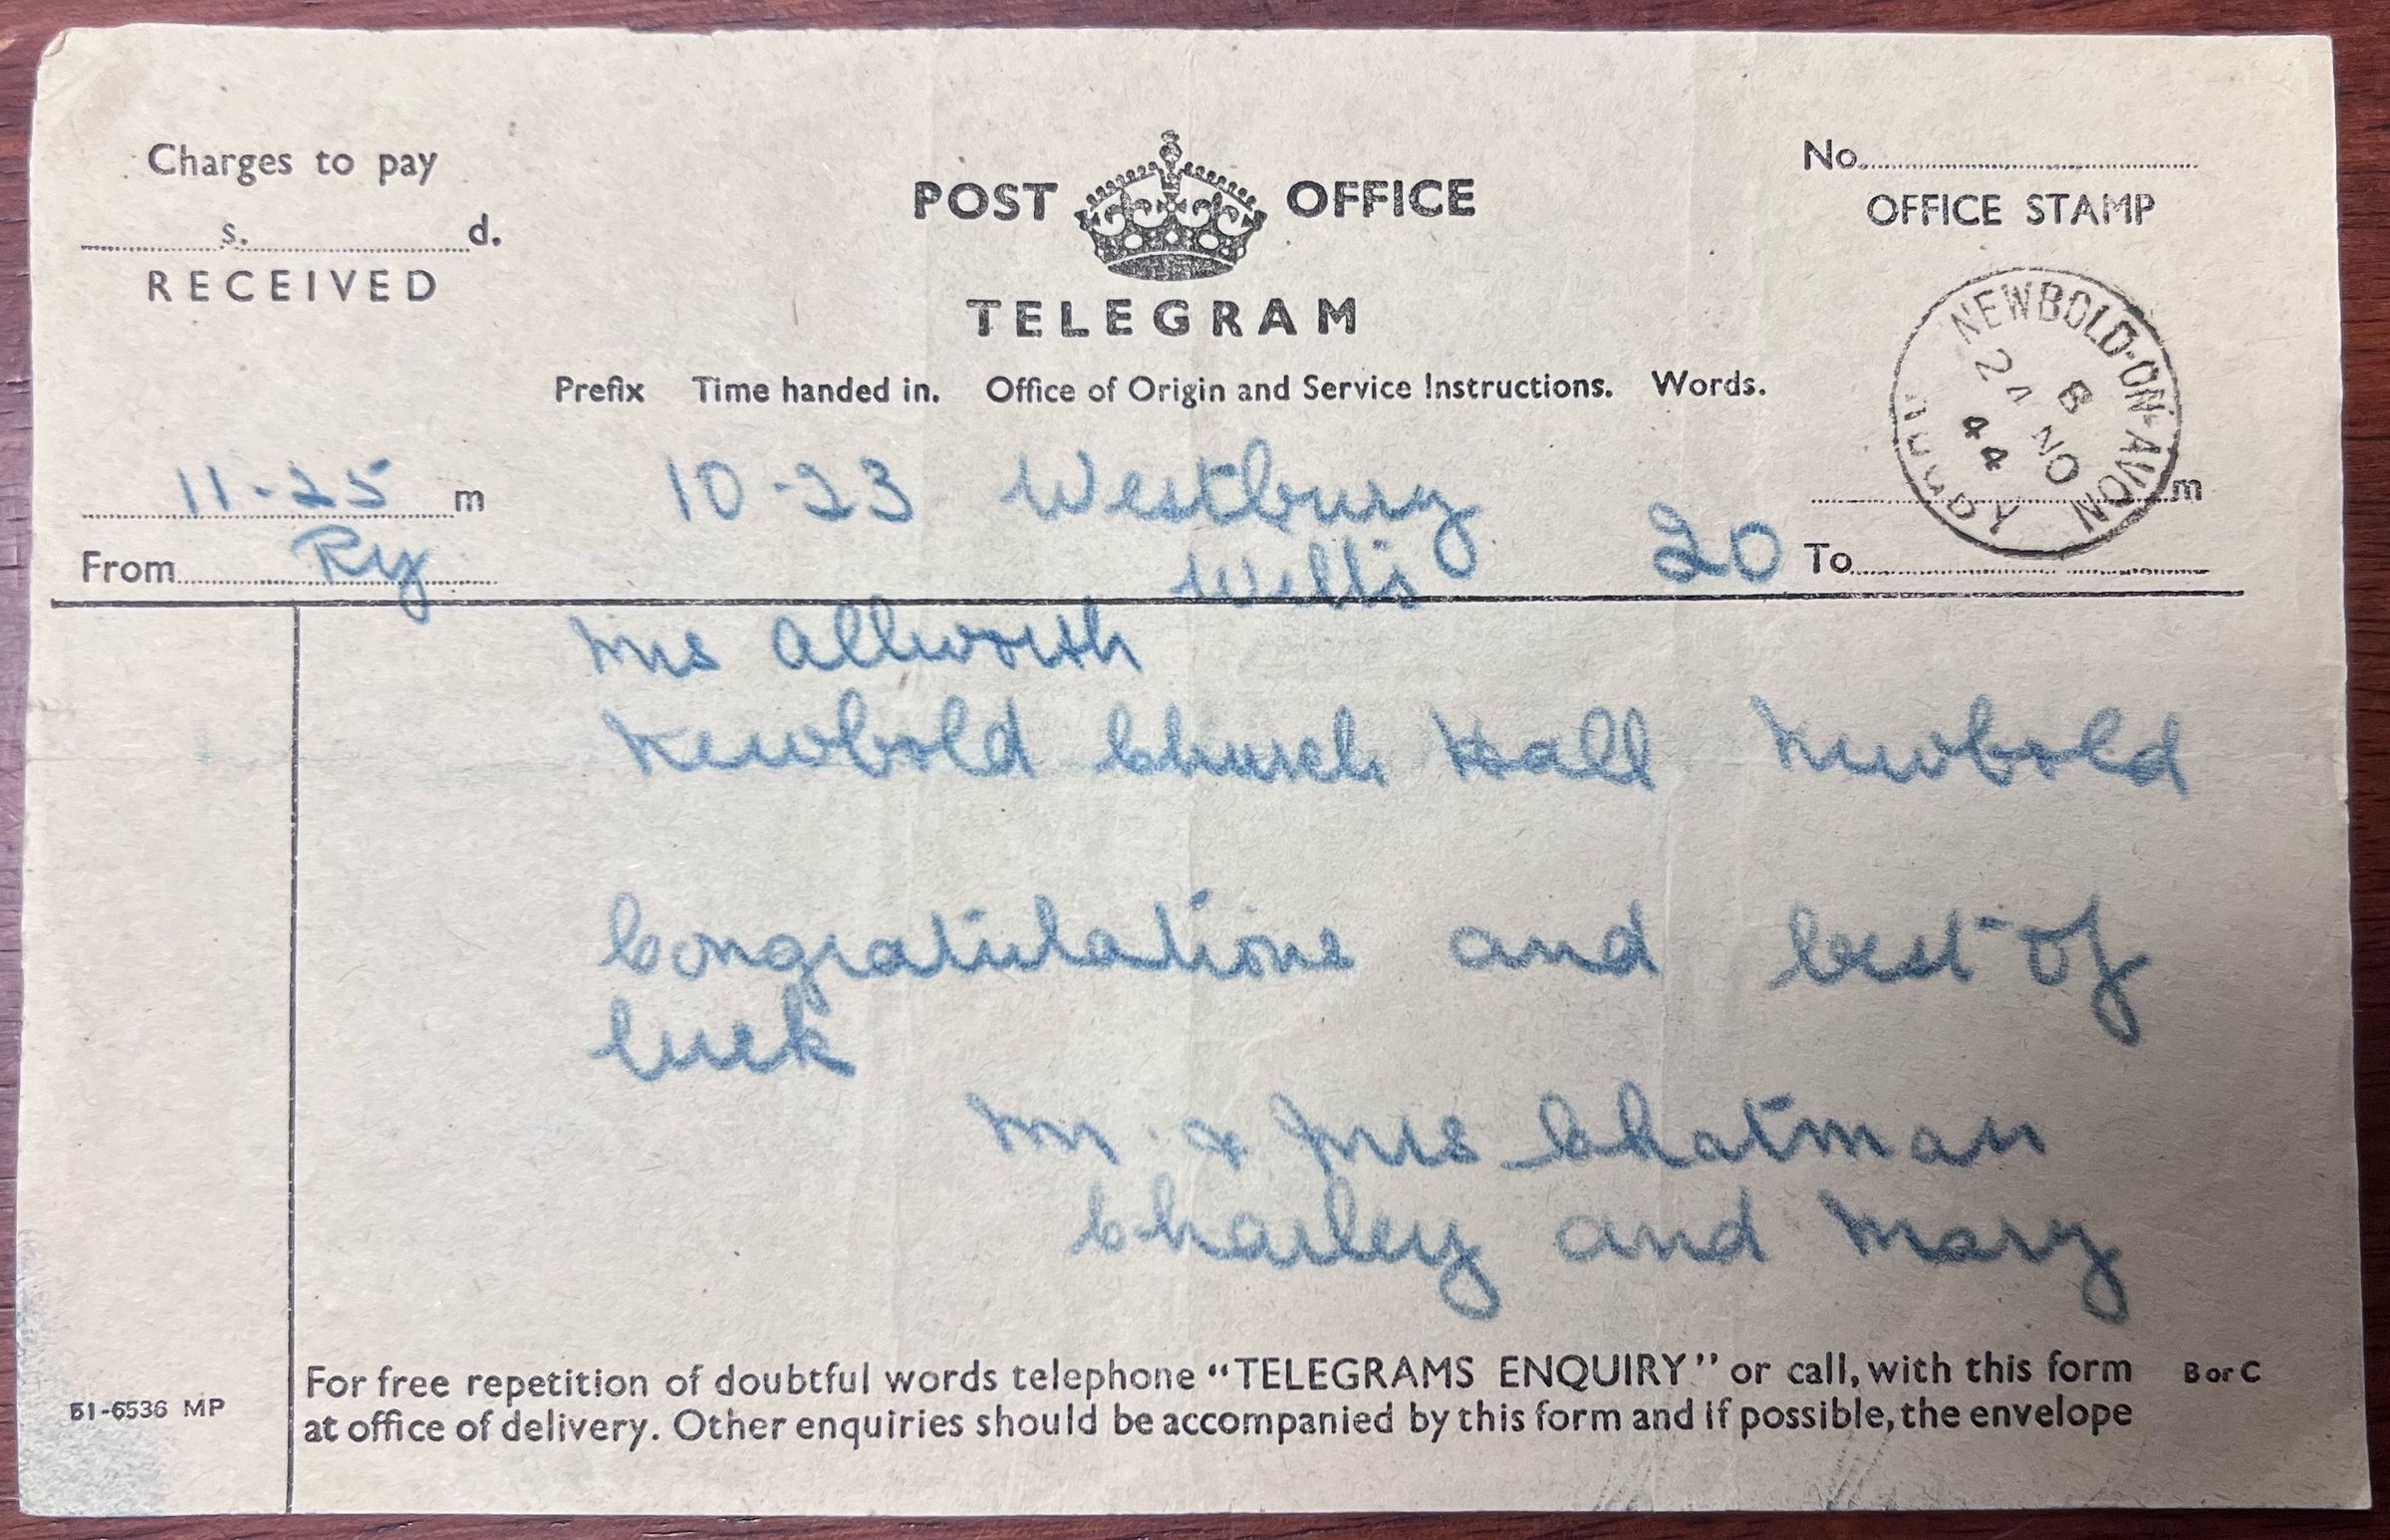 Charges to pay
s. d.
RECEIVED
POST OFFICE
TELEGRAM
No.
OFFICE STAMP
NEWBOLD-ON-AVON
RUGBY
B
24 NO
44
Prefix Time handed in. Office of Origin and Service Instructions. Words.
11-25 m 10-23 Westbury m
From Ry Wilts 20 To
Mrs Allworth
Newbold Church Hall Newbold
Congratulations and best of
luck
Mr. & Mrs Chatman
Charley and Mary
For free repetition of doubtful words telephone “TELEGRAMS ENQUIRY” or call, with this form B or C
at office of delivery. Other enquiries should be accompanied by this form and if possible, the envelope
51-6536 MP